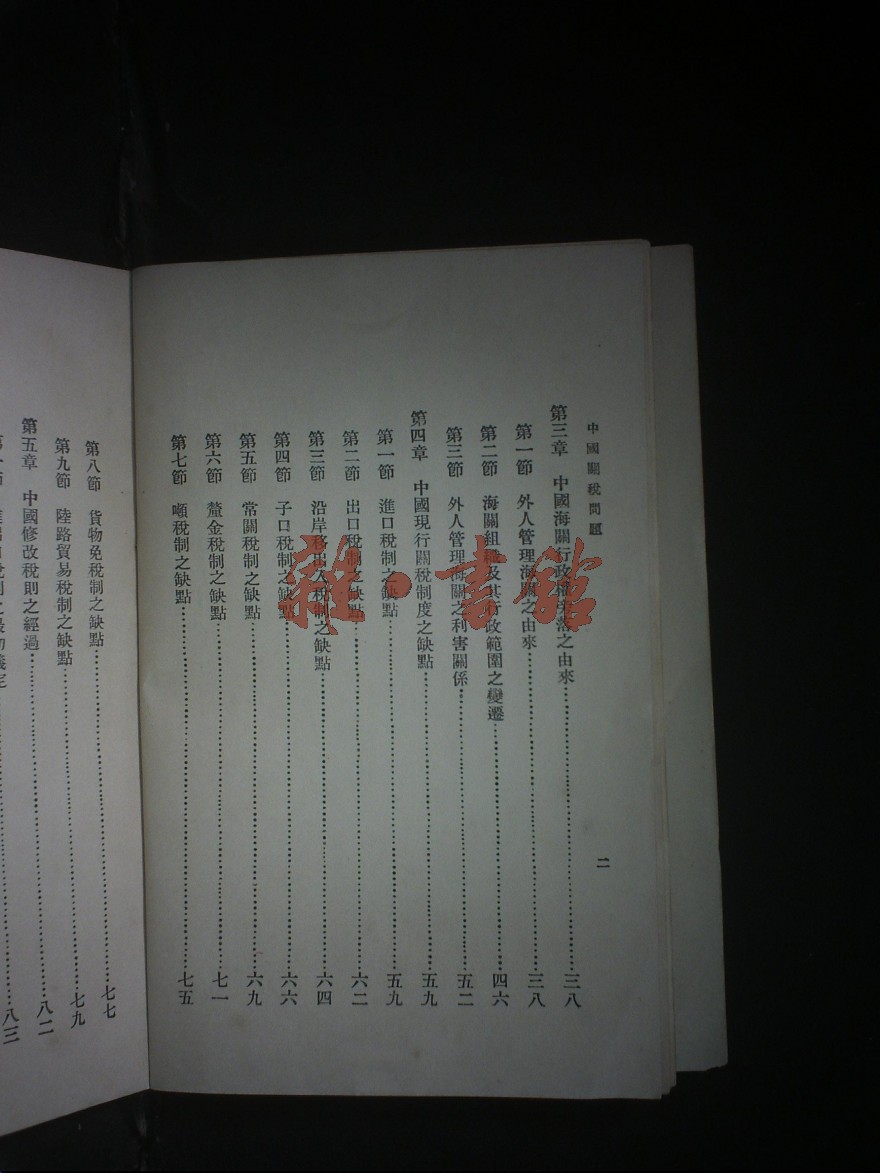 中國關税問題
二
第三章 中國海關行政權旁落之由來 三八
第一節 外人管理海關之由來 三八
第二節 海關組織及其行政範圍之變遷 四六
第三節 外人管理海關之利害關係 五二
第四章 中國現行關税制度之缺點 五九
第一節 進口税制之缺點 五九
第二節 出口税制之缺點 六二
第三節 沿岸移出入税制之缺點 六四
第四節 子口税制之缺點 六六
第五節 常關税制之缺點 六九
第六節 釐金税制之缺點 七一
第七節 噸税制之缺點 七五
第八節 貨物免税制之缺點 七七
第九節 陸路貿易税制之缺點 七九
第五章 中國修改税則之經過 八二
八三
雜·書館